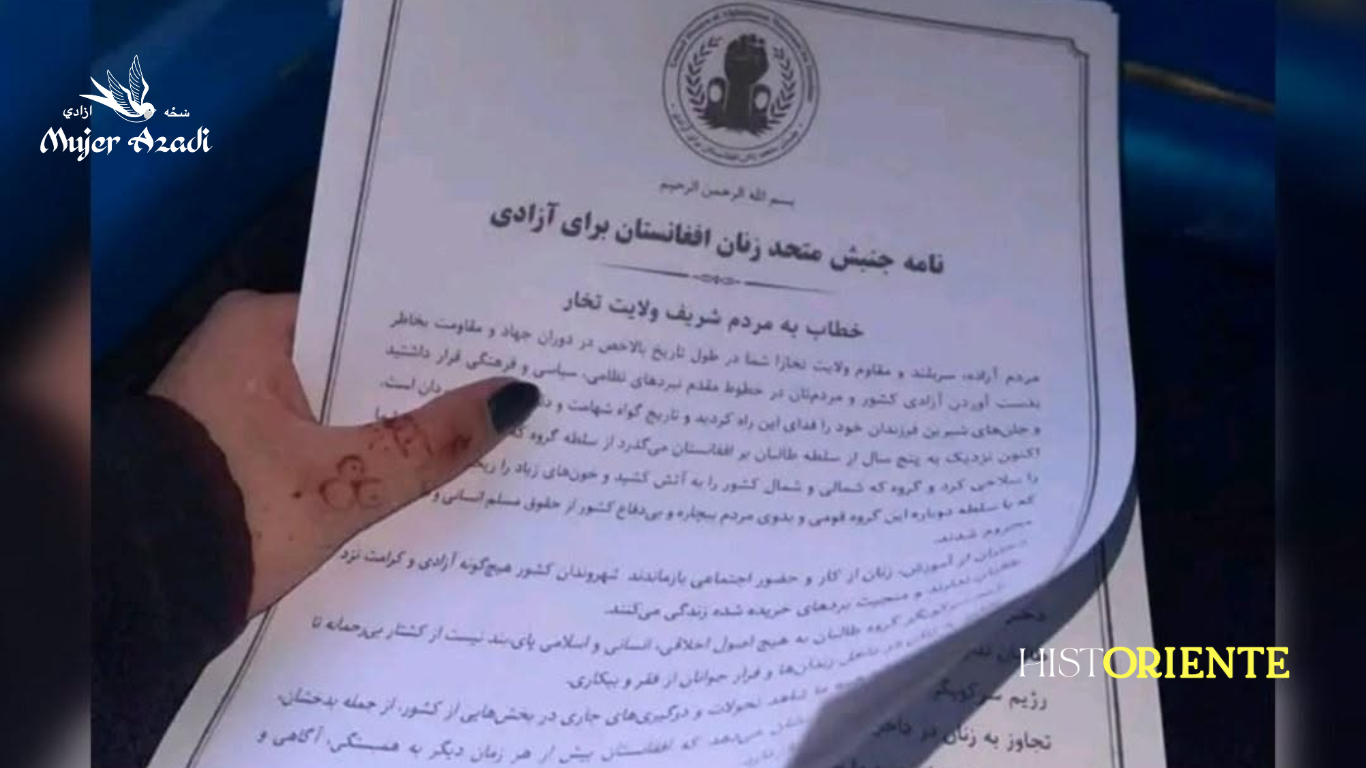 ازادي ښځه
Mujer Azadi
United Women of Afghanistan Movement for Freedom
جنبش متحد زنان افغانستان برای آزادی
بسم الله الرحمن الرحیم
نامه جنبش متحد زنان افغانستان برای آزادی
خطاب به مردم شریف ولایت تخار
مردم آزاده، سربلند و مقاوم ولایت تخار! شما در طول تاریخ بالاخص در دوران جهاد و مقاومت بخاطر
بدست آوردن آزادی کشور و مردم‌تان در خطوط مقدم نبردهای نظامی، سیاسی و فرهنگی قرار داشتید
و جان‌های شیرین فرزندان خود را فدای این راه کردید و تاریخ گواه شهامت و دان است.
اکنون نزدیک به پنج سال از سلطه طالبان بر افغانستان می‌گذرد از سلطه گروه که شما
را سلاخی کرد و گروه که شمالی و شمال کشور را به آتش کشید و خون‌های زیاد را
که با سلطه دوباره این گروه قومی و بدوی مردم بیچاره و بی‌دفاع کشور از حقوق مسلم انسانی و
محروم شدند.
دختران از آموزش، زنان از کار و حضور اجتماعی بازماندند شهروندان کشور هیچ‌گونه آزادی و کرامت نزد
طالبان ندارند و منحیث برده‌های خریده شده زندگی می‌کنند.
گروه طالبان به هیچ اصول اخلاقی، انسانی و اسلامی پای‌بند نیست از کشتار بی‌رحمانه تا
در داخل زندان‌ها و فرار جوانان از فقر و بیکاری.
ما شاهد تحولات و درگیری‌های جاری در بخش‌هایی از کشور، از جمله بدخشان،
می‌دهد که افغانستان بیش از هر زمان دیگر به همبستگی، آگاهی و
دختر
رژیم سرکوبگر
تجاوز به زنان در داخل
HISTORIENTE